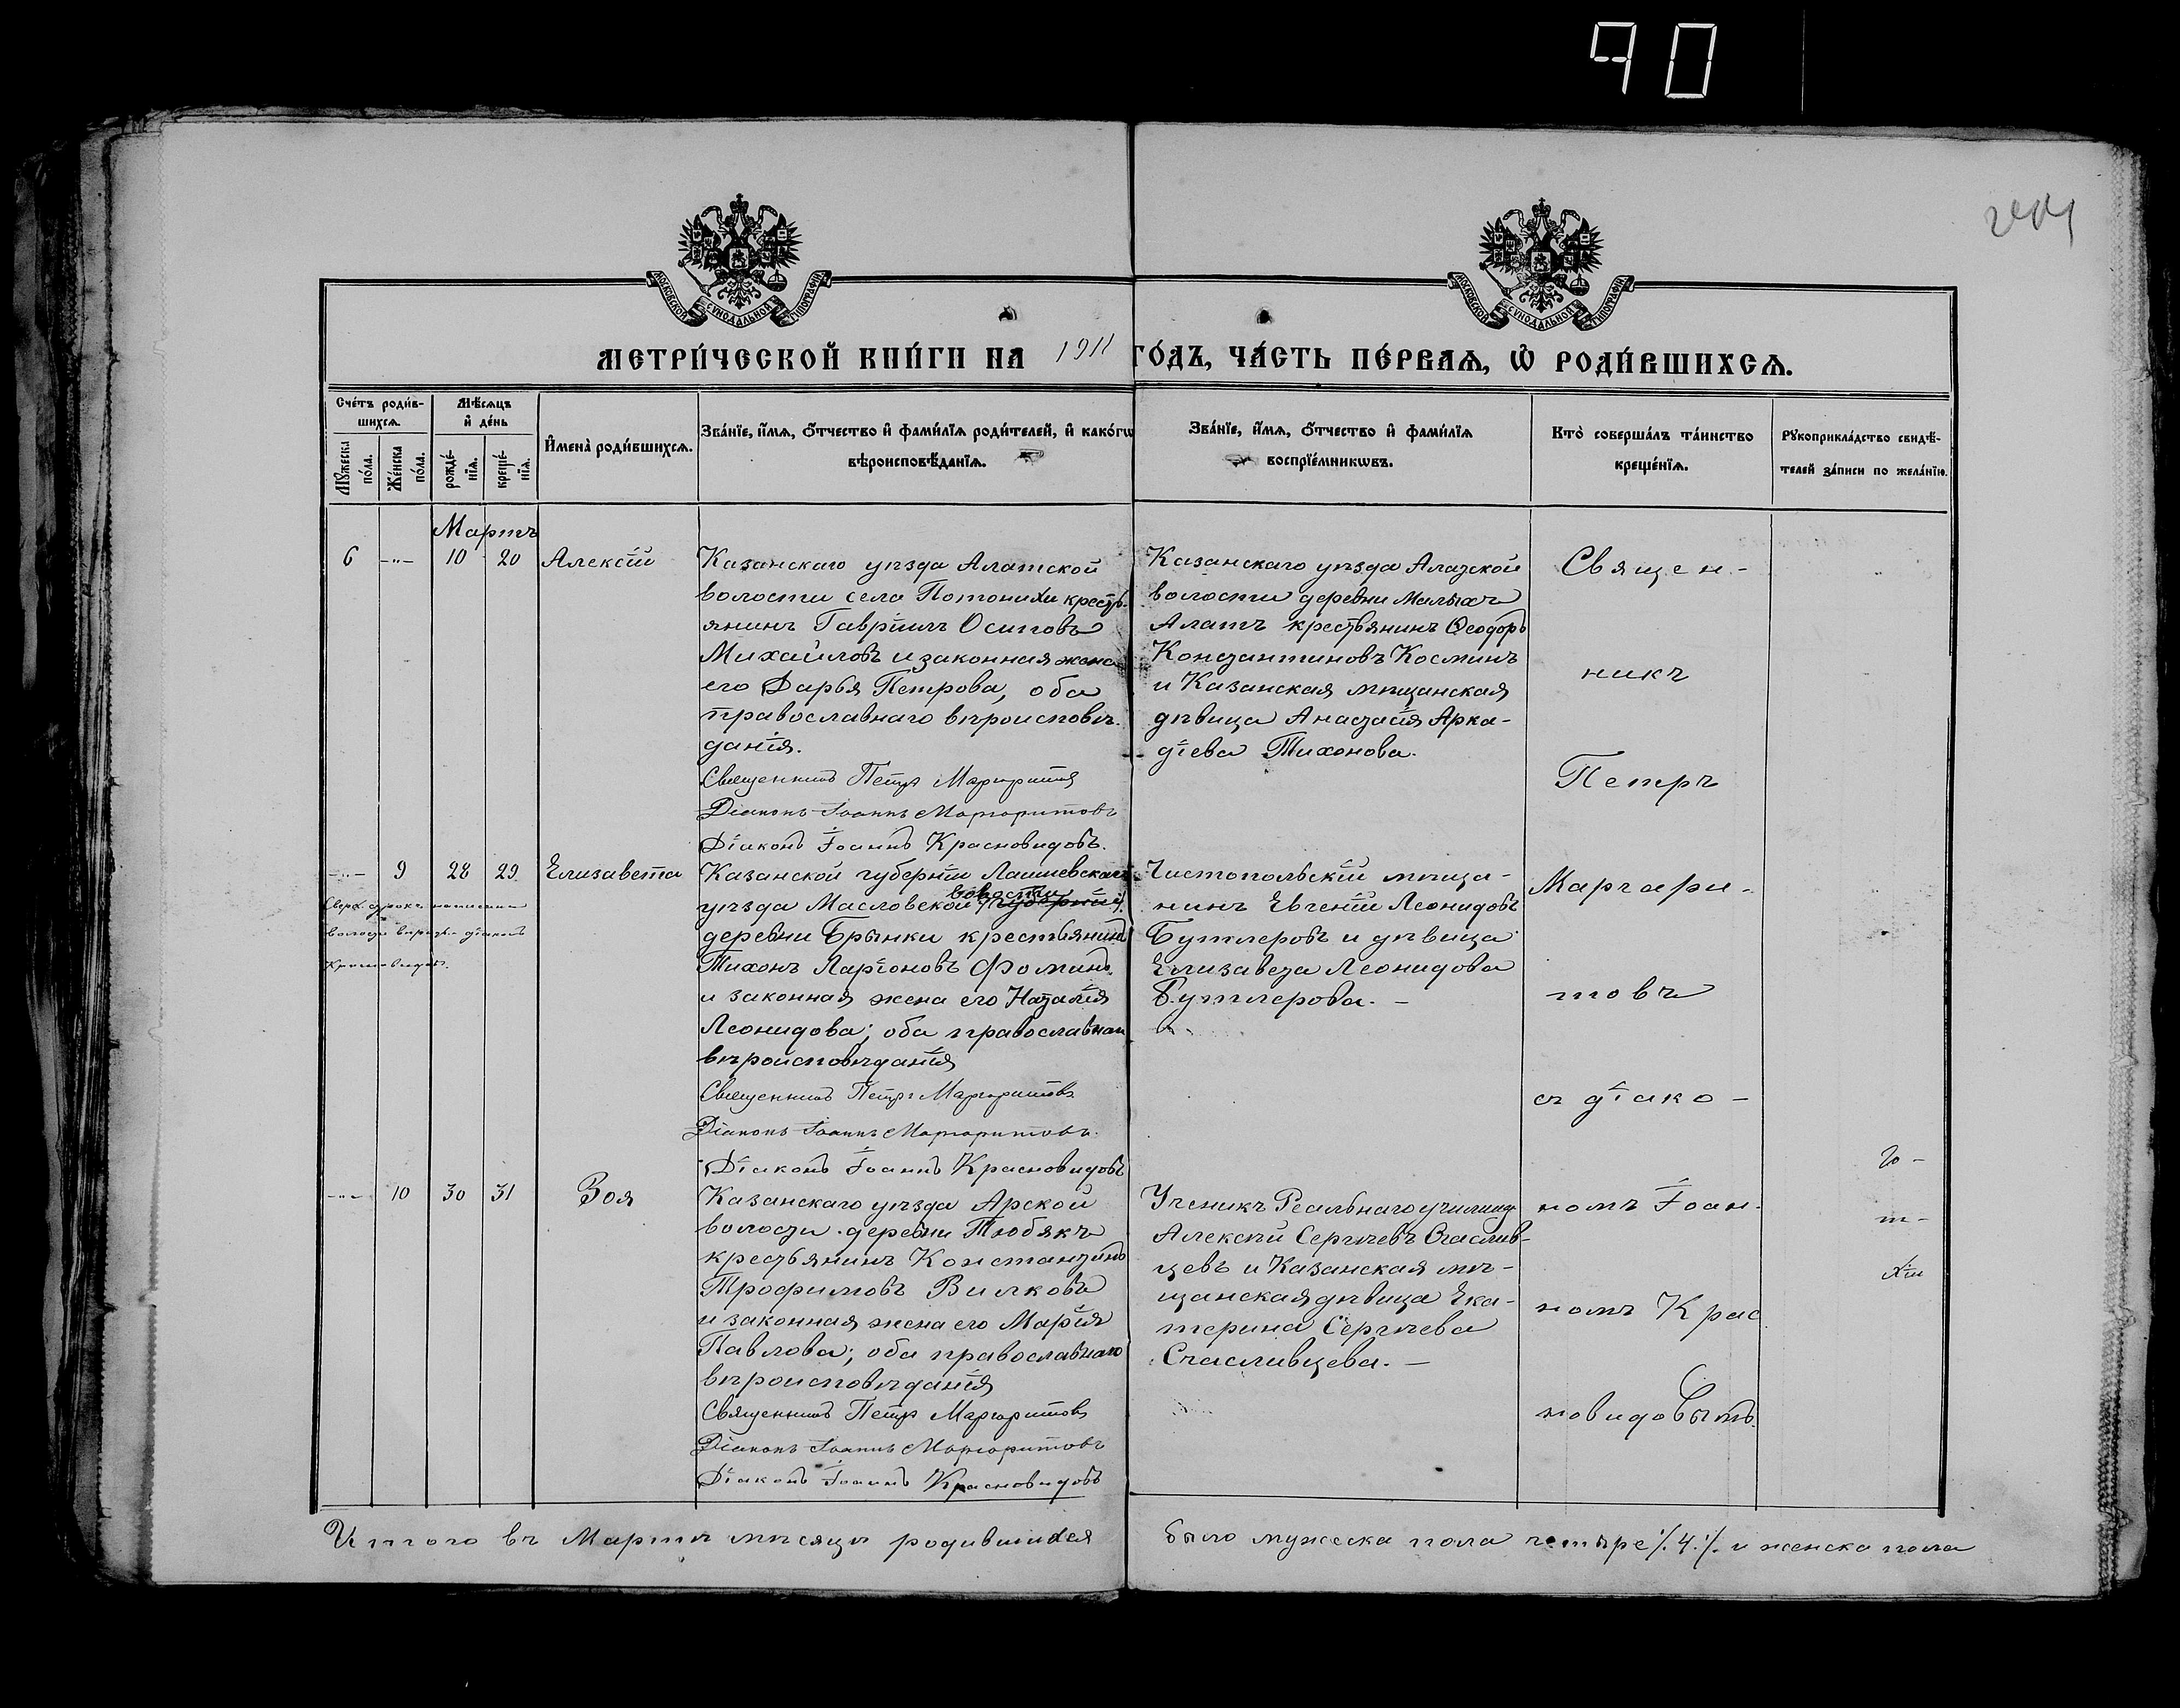 90
МОСКОВСКОЙ СУНОДАЛЬНОЙ ТИПОГРАФІИ
МОСКОВСКОЙ СУНОДАЛЬНОЙ ТИПОГРАФІИ
МЕТРИ́ЧЕСКОЙ КНИ́ГИ НА 1911 ГО́ДЪ, ЧА́СТЬ ПЕ́РВАѦ, Ѡ҆ РОДИ́ВШИХСѦ.
Сче́тъ роди́в-
шихсѧ.
Мꙋ́жеска по́ла.
Же́нска по́ла.
Мѣ́сѧцъ
и҆ де́нь
рожде́-
нїѧ.
креще́-
нїѧ.
И҆мена̀ роди́вшихсѧ.
Зва́нїе, и҆́мѧ, ѻ҆́тчество и҆ фами́лїѧ роди́телей, и҆ како́гѡ
вѣроисповѣ́данїѧ.
Зва́нїе, и҆́мѧ, ѻ҆́тчество и҆ фами́лїѧ
воспрїе́мникѡвъ.
Кто̀ соверша́лъ та́инство
креще́нїѧ.
Рꙋкоприкла́дство свидѣ́-
телей за́писи по жела́нїю.
Мартъ
6 -"- 10 20 Алексѣй
Казанскаго уѣзда Алатской
волости села Потонихи кресть-
янинъ Гавріилъ Осиповъ
Михайловъ и законная жена
его Дарья Петрова, оба
православнаго вѣроисповѣ-
данія.
Священникъ Петръ Маргаритовъ
Діаконъ Іоаннъ Маргаритовъ
Діаконъ Іоаннъ Красновидовъ.
Казанскаго уѣзда Алатской
волости деревни Малыхъ
Алатъ крестьянинъ Ѳеодоръ
Константиновъ Косминъ
и Казанская мѣщанская
дѣвица Анастасія Арка-
діева Тихонова.
-"- 9 28 29 Елизавета
Сверхъ строкъ написанное
волости вѣрно. діаконъ
Красновидовъ.
Казанской губерніи Лаишевскаго
уѣзда Масловской волости
деревни Брынки крестьянинъ
Тихонъ Ларіоновъ Фоминъ
и законная жена его Наталія
Леонидова; оба православнаго
вѣроисповѣданія
Священникъ Петръ Маргаритовъ
Діаконъ Іоаннъ Маргаритовъ.
Діаконъ Іоаннъ Красновидовъ
Чистопольскій мѣща-
нинъ Евгеній Леонидовъ
Бутлеровъ и дѣвица
Елизавета Леонидова
Бутлерова. -
-"- 10 30 31 Зоя
Казанскаго уѣзда Арской
волости деревни Тюбякъ
крестьянинъ Константинъ
Трофимовъ Вилковъ
и законная жена его Марія
Павлова; оба православнаго
вѣроисповѣданія
Священникъ Петръ Маргаритовъ
Діаконъ Іоаннъ Маргаритовъ
Діаконъ Іоаннъ Красновидовъ
Ученикъ Реальнаго училища
Алексѣй Сергѣевъ Счаслив-
цевъ и Казанская мѣ-
щанская дѣвица Ека-
терина Сергѣева
Счасливцева. -
Священ-
никъ
Петръ
Маргари-
товъ
съ діако-
номъ Іоан-
номъ Крас
новидовымъ.
Итого въ Мартѣ мѣсяцѣ родившихся было мужеска пола четыре /.4./. и женска пола